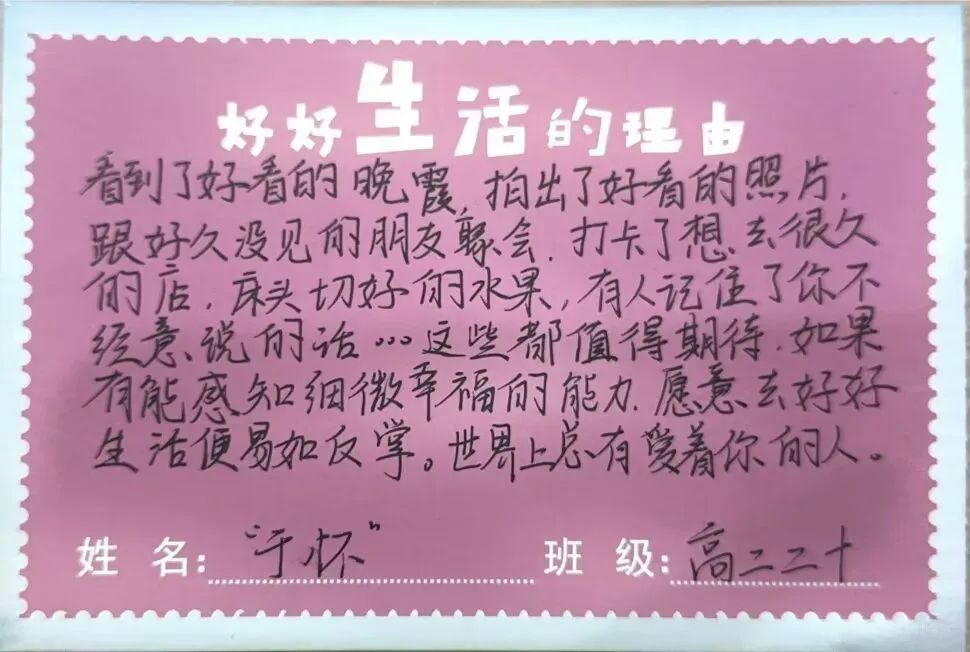 好好生活的理由
看到了好看的晚霞,拍出了好看的照片,
跟好久没见的朋友聚会,打卡了想去很久
的店,床头切好的水果,有人记住了你不
经意说的话…这些都值得期待.如果
有能感知细微幸福的能力.愿意去好好
生活便易如反掌。世界上总有爱着你的人。
姓名:“于怀” 班级:高二二十